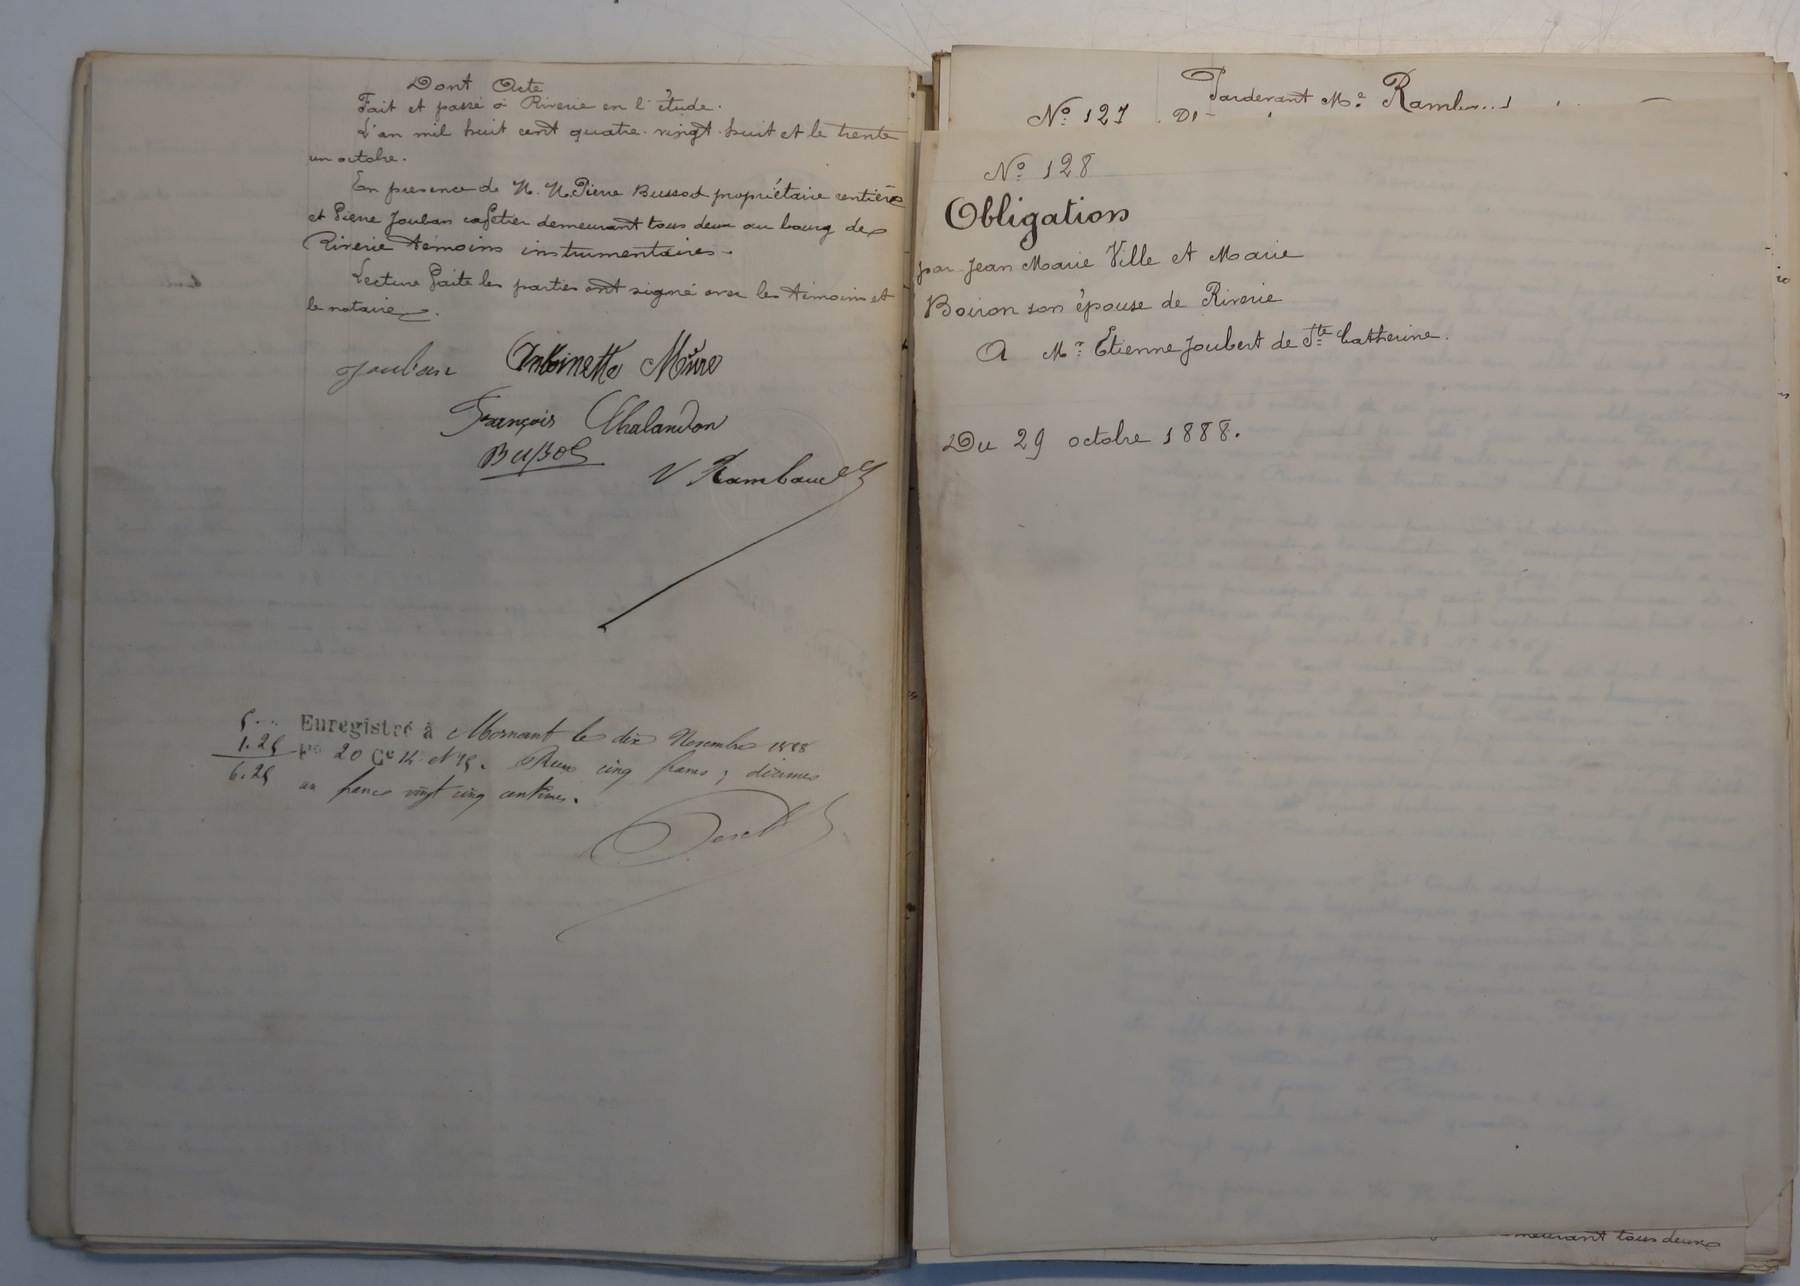 Dont Acte
Fait et passé à Riverie en l'étude.
L'an mil huit cent quatre-vingt-huit et le trente
un octobre.
En présence de M. M. Pierre Bussod propriétaire rentier
et Pierre Joulan cafetier demeurant tous deux au bourg de
Riverie témoins instrumentaires.
Lecture faite les parties ont signé avec les témoins et
le notaire.
Joulan Antoinette Mure
François Chalandon
V Rambaud
5. "
1.25
6.25
Enregistré à Mornant le dix Novembre 1888
Fo 20 Ce 14 Reçu cinq francs, décimes
un franc vingt cinq centimes.
Pardevant Me
No 127
No 128
Obligation
par Jean Marie Ville et Marie
Boiron son épouse de Riverie
A Mr Etienne Joubert de Ste Catherine.
Du 29 octobre 1888.
tous deux